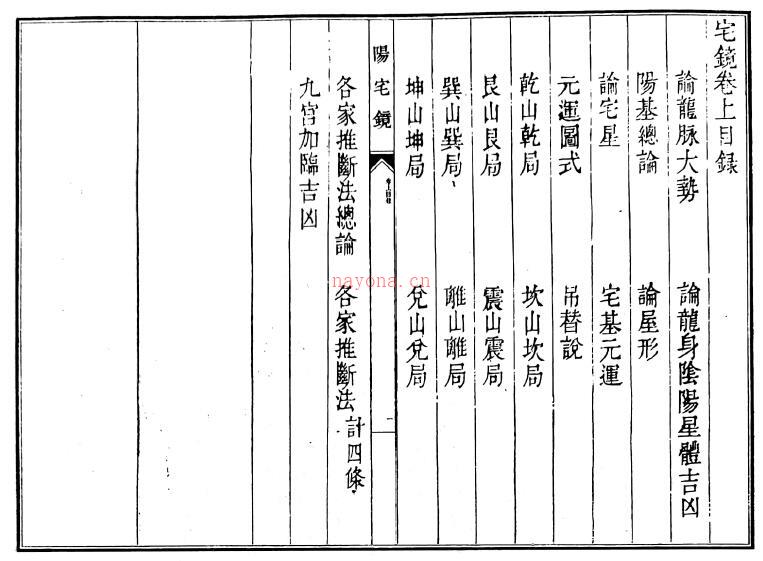 宅鏡卷上目錄
論龍脉大勢　論龍身陰陽星體吉凶
陽基總論　論屋形
論宅星　宅基元運
元運圖式　吊替說
乾山乾局　坎山坎局
艮山艮局　震山震局
巽山巽局　離山離局
坤山坤局　兌山兌局
陽宅鏡　一
各家推斷法總論　各家推斷法計四條
九宮加臨吉凶
nayona.cn